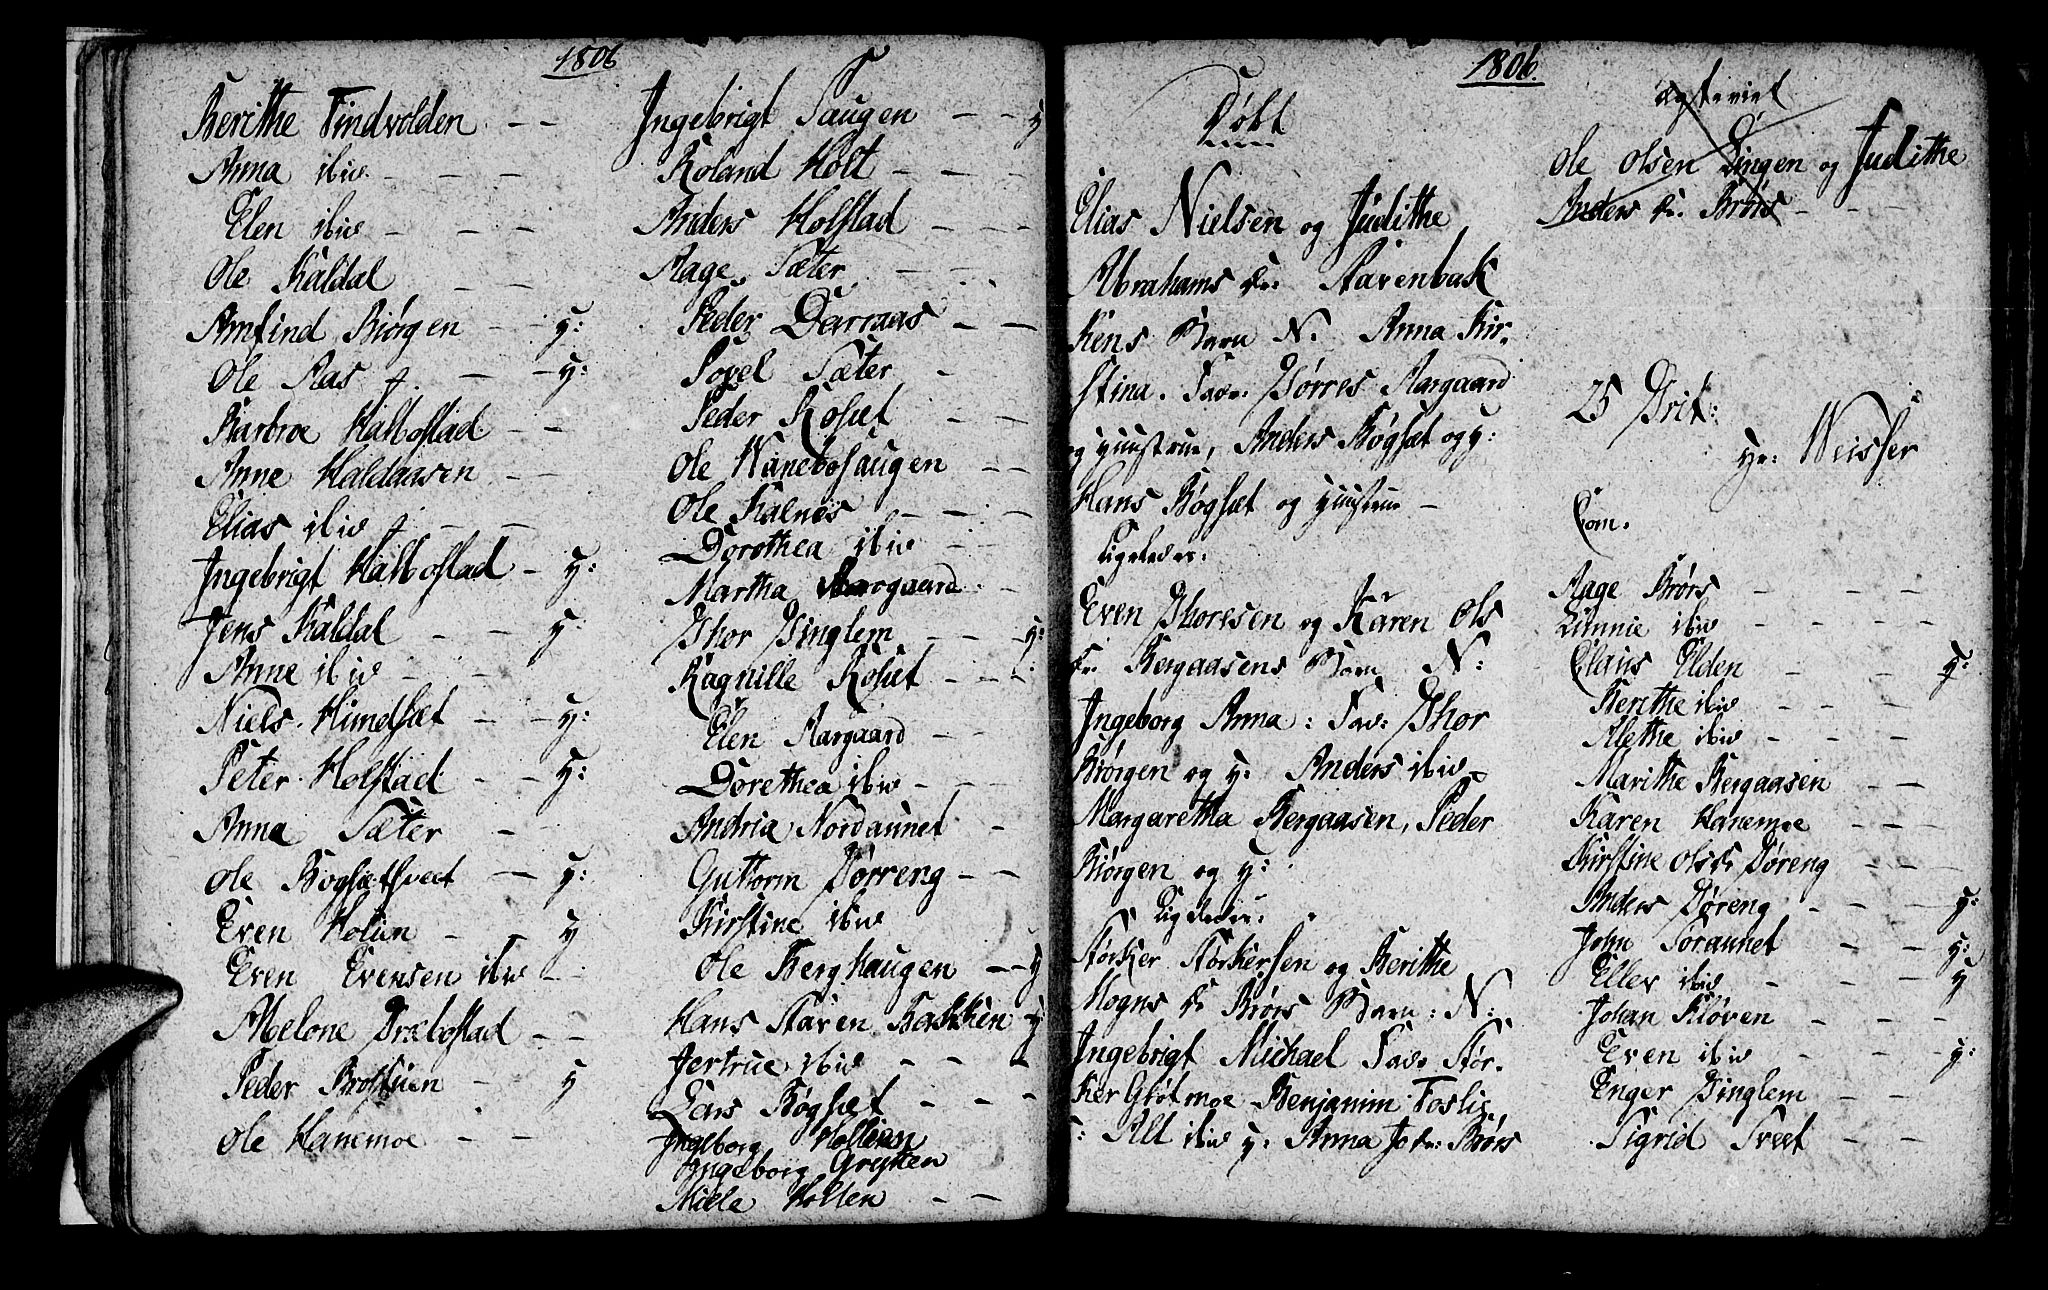 1806
Berithe Tindvolden - -
Anna ibid - - -
Elen ibid - - -
Ole Kaldal - -
Amfind Biörgen - - y:
Ole Aas - - y:
Barbroe Halbostad - -
Anne Haldaasen - -
Elias ibid - -
Ingebrigt Halbostad - y:
Jens Kaldal - - y:
Anne ibid - -
Niels Himelsæt - - y:
Peter Holstad - - y:
Anna Sæter -
Ole Bogsætsveet - y:
Even Holien - - y
Even Evensen ibid -
Abelone Træbostad - -
Peder Brostuen - y
Ole Hanemoe - -
Ingebrigt Haugen - - y
Roland Holt - - -
Anders Holstad - - -
Aage Sæter - -
Peder Darraas - -
Sovel Sæter -
Peder Rosæt - -
Ole Wanebohaugen - -
Ole Kalnes - - -
Dorothea ibid - -
Martha Aargaard -
Thor Dinglem - - y:
Ragnille Rosæt - - -
Elen Aargaard - -
Dorethea ibid - - -
Andria Nordaunet -
Guttorm Dörreng - -
Kirstine ibid
Ole Berghaugen - - y
Hans Staren Bakken y
Jertrue ibid - - -
Lars Bögsæt - - -
Ingeborg Hollien
Ingeborg Grytten
Niele Hollen - -
1806.
Döbt
Elias Nielsen og Judithe
Abrahams Dr. Starenbak
Kens Barn N. Anna Kir-
stina. Fad: Thörres Aargaard
og Hustrue, Anders Bögsæt og y:
Hans Bögsæt og Hustrue -
Ligeledes:
Even Thoresen og Karen Ols
Dr. Bergaasens Barn N:
Ingeborg Anna: Fad: Thor
Biörgen og y: Anders ibid
Margaretha Bergaasen, Peder
Biörgen og y:
Ligeledes:
Störker Störkersen og Berithe
Mogns Dr. Brörs Barn: N:
Ingebrigt Michael Fad: Stör-
ker Glötmoe Benjamin Foslie,
Alt ibid y: Anna Jo Dr: Brörs
Ægteviet
Ole Olsen Lingen og Judithe
Anders Dr. Brörs - - -
25 Trit:
Hr: Weisser
Com.
Aage Brörs - - -
Lunnie ibid - - - -
Claus Elden - - y:
Berithe ibid - - -
Alethe ibid - - -
Marithe Bergaasen - -
Karen Hanemoe - - -
Kirstine Ols Dr Döreng - - -
Anders Döreng - - - y:
John Soraunet - - y:
Eller ibid - - - y
Johan Klöven - - -
Even ibid - - - y:
Enger Dinglem - - -
Sigrid Tveet - -